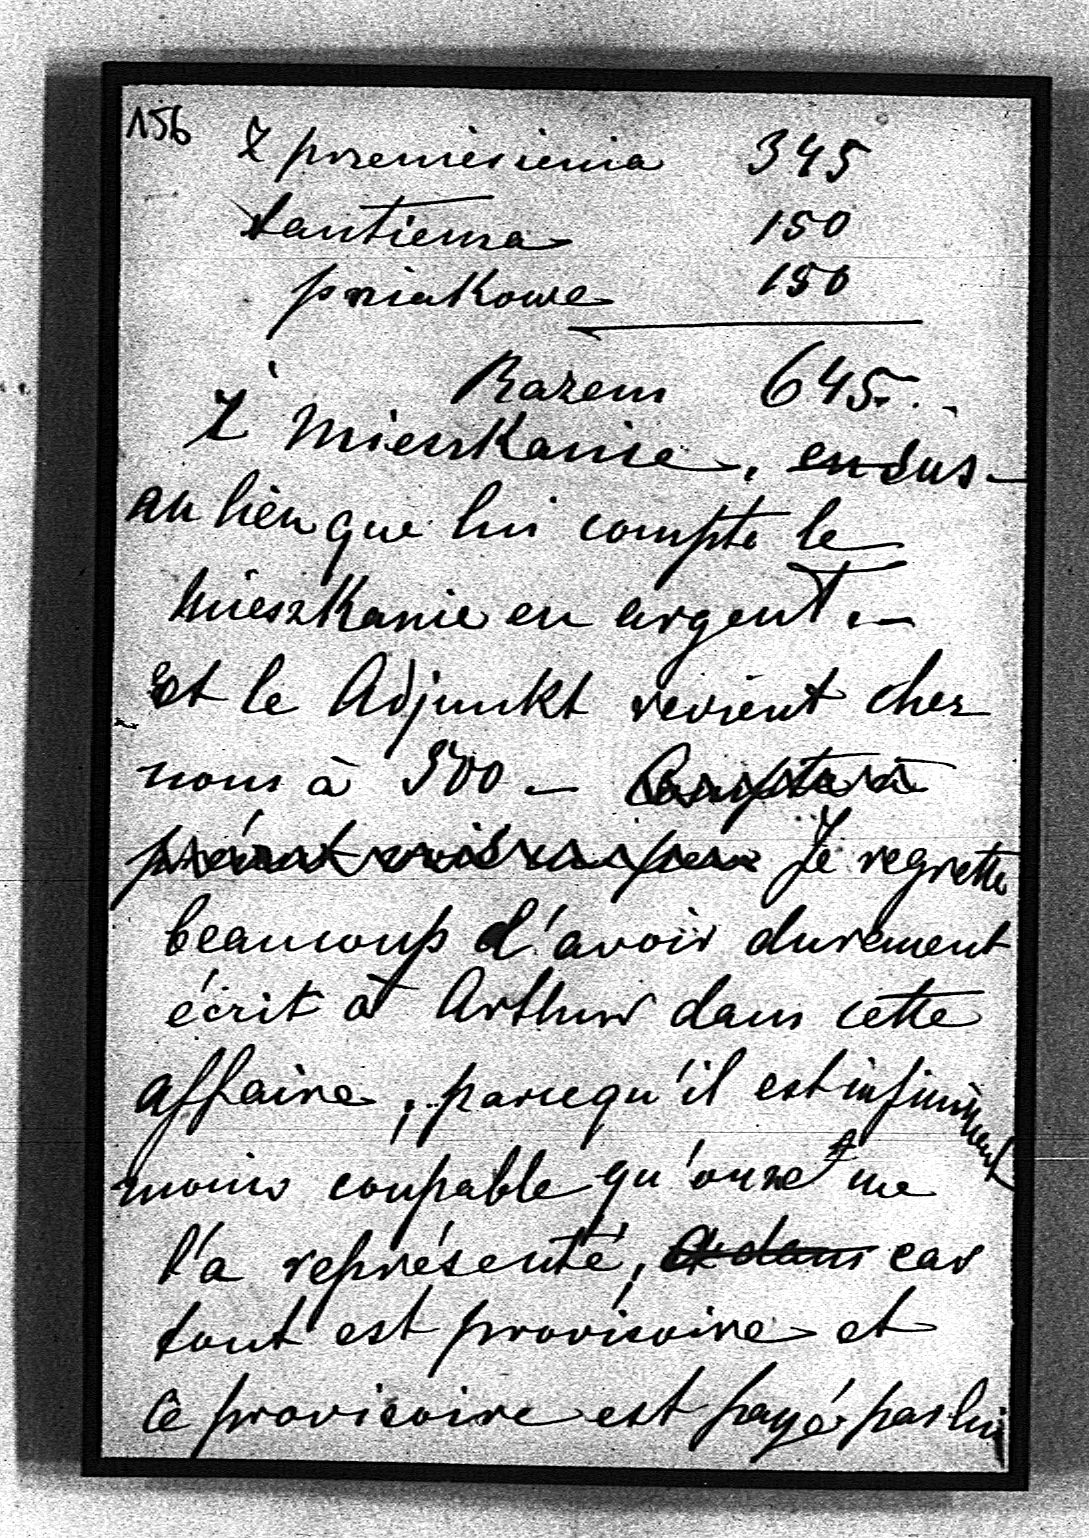 156
Z przeniesienia 345
tantiema 150
pniakowe 150
Razem 645.-
Z mieszkanie, en sus -
au lieu que lui compte le
mieszkanie en argent. -
Et le Adjunkt revient chez
nous à 500 - Compte à
présent Je regrette
beaucoup d'avoir durement
écrit à Arthur dans cette
affaire, parcequ'il est infiniment
moins coupable qu' on ne me
l'a représenté, et dans car
tout est provisoire et
ce provisoire est payé par lui